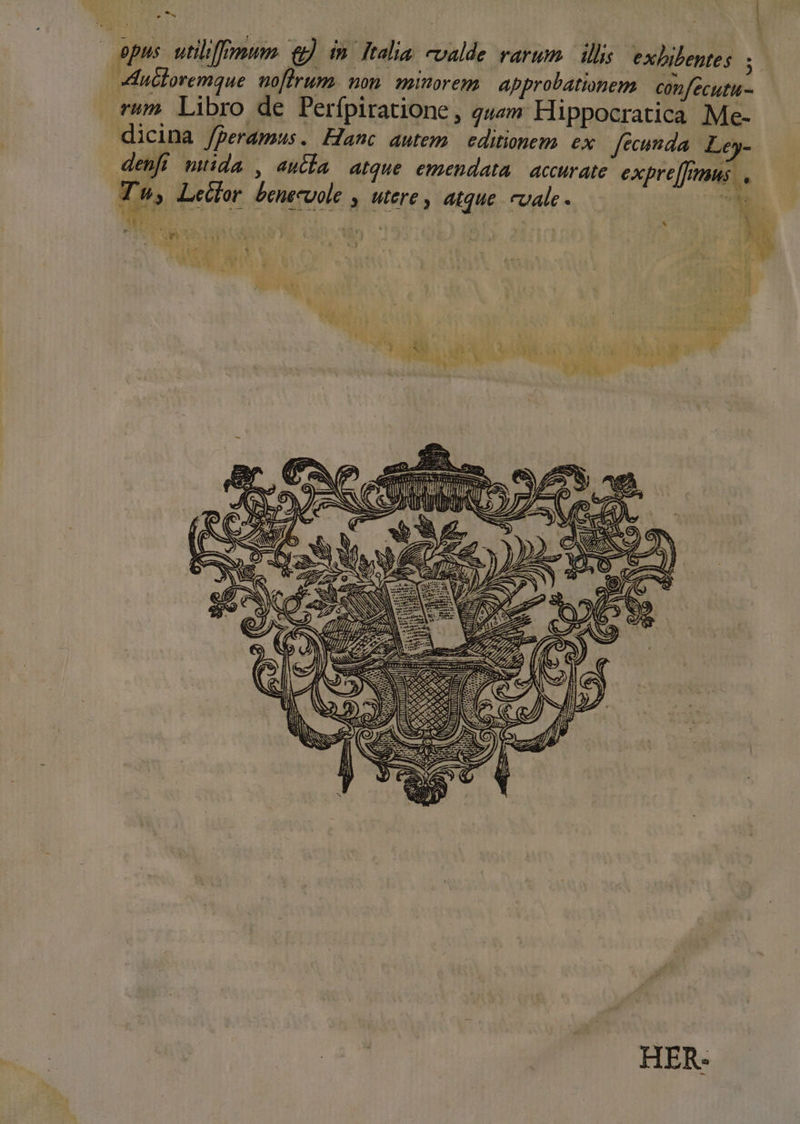 opus utiliſſimum & in Italia valde rarum illis exhibentes ;
Auctoremque noſtrum non minorem approbationem conſecutu-
rum Libro de Perſpiratione, quam Hippocratica Me-
dicina ſperamus. Hanc autem editionem ex ſecunda Ley-
denſi nitida , aucta atque emendata accurate expreſſimus .
Tu, Lector benevole , utere, atque vale.
HER-